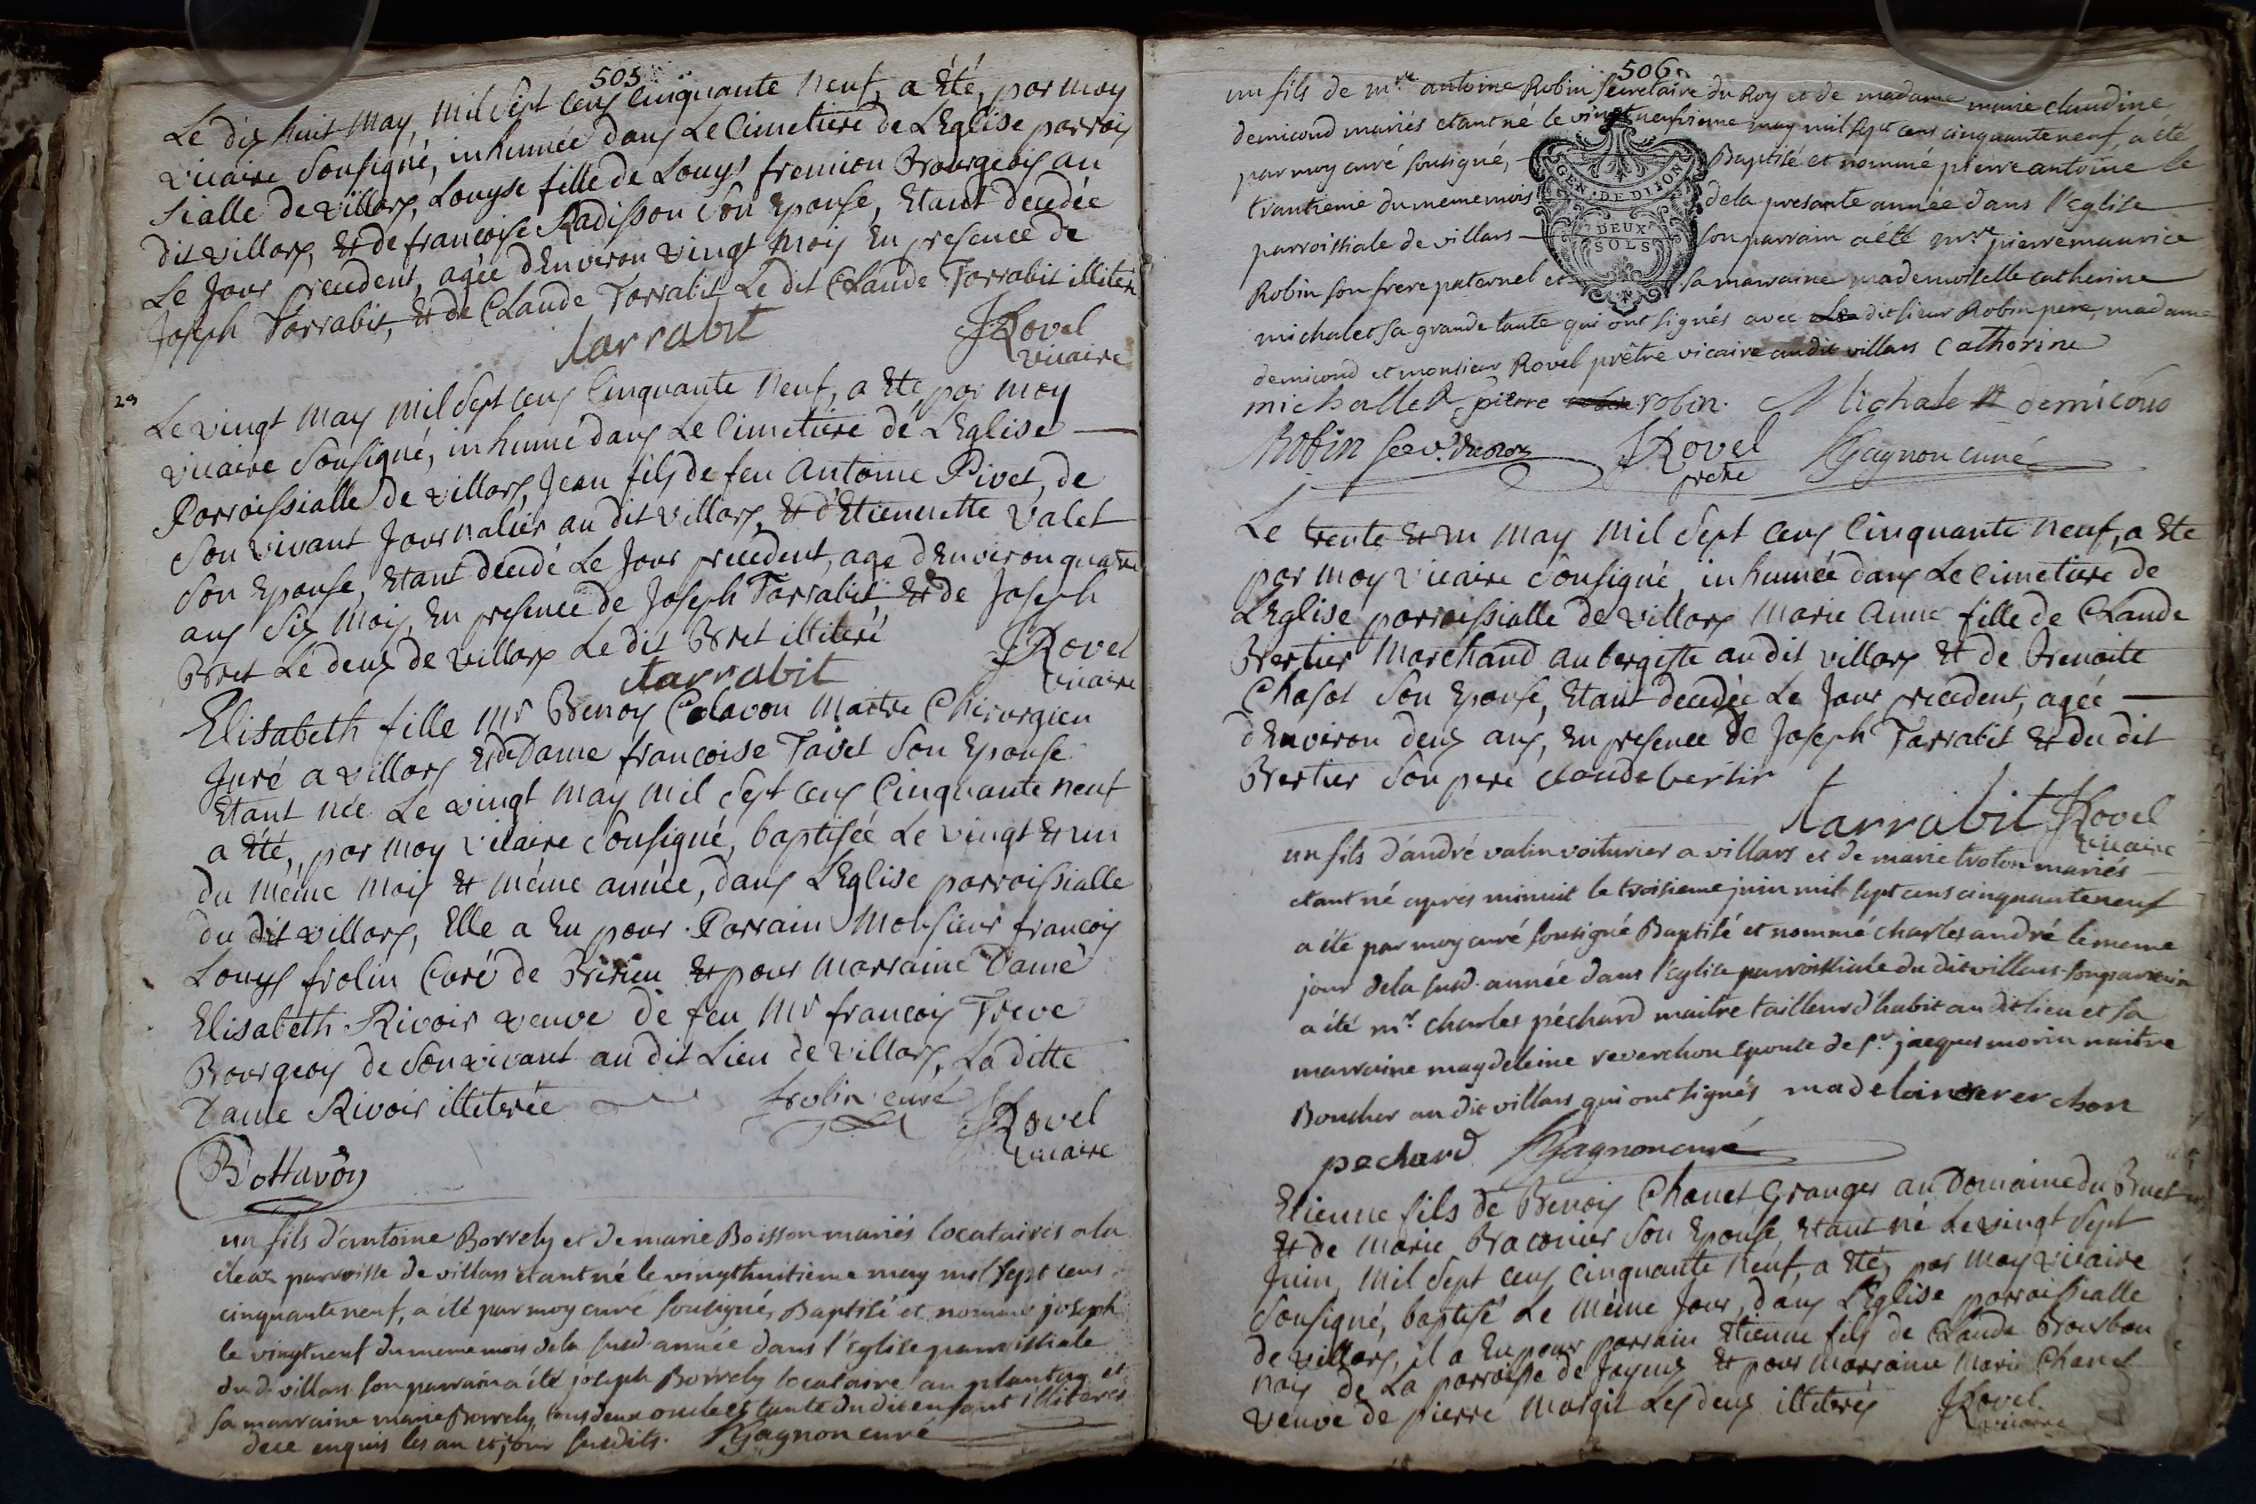 505
Le dix huit May, Mil Sept Cens Cinquante Neuf, a Eté, par moy
Vicaire Sousigné, inhumée dans Le Cimetiere de L'Eglise parrois
Sialle de Villars, Louyse fille de Louys fremion Bourgeois au
dit Villars, Et de francoise Radisson Son Epouse, Etant decedée
Le Jour precedent, agée d'Environ vingt Mois En presence de
Joseph Tarrabit, Et de Claude Tarrabit Le dit Claude Tarrabit illiteré
tarrabit JRovel
Vicaire
29
Le vingt May Mil Sept Cens Cinquante Neuf, a Eté par moy
Vicaire Sousigné, inhumé dans Le Cimetiere de L'Eglise
Parroissialle de Villars, Jean fils de feu Antoine Pivet, de
Son Vivant Journalier au dit Villars, Et d'Etiennette Valet
Son Epouse, Etant decedé Le Jour precedent, age d'Environ quatre
ans Six Mois, En presence de Joseph Tarrabit, Et de Joseph
Bret Le deux de Villars Le dit Bret illiteré
tarrabit JRovel
Vicaire
Elisabeth fille Mr Benoy Colavon Maitre Chirurgien
Juré a Villars Et de Dame francoise Tavet Son Epouse
Etant née Le vingt May Mil Sept Cens Cinquante neuf
a Eté, par moy Vicaire Sousigné, baptisée Le vingt Et un
du Méme Mois Et Méme année, dans L'Eglise parroissialle
du dit Villars, Elle a Eu pour Parrain Monsieur francois
Louys frolin Curé de Birieu Et pour Marraine Dame
Elisabeth Rivoir veuve de feu Mr francois Treve
Bourgeois de Son vivant au dit Lieu de Villars, La ditte
Dame Rivoir illiterée frolin curé
JRovel
Vicaire
un fils d'antoine Borrely et de marie Boisson mariés locataires a la
parroisse de villars etant né le vingthuitieme may mil sept cens
cinquante neuf, a été par moy curé sousigné, Baptisé et nommé joseph
le vingtneuf du meme mois de la susd année dans l'Eglise parroissiale
du d villars son parrain a été joseph Borrely locataire au plantay et
sa marraine marie Borrely tous deux oncle et tante du dit enfant illiterés
de ce enquis les an et jour susdits. Gagnon curé
506
un fils de mre antoine Robin secretaire du Roy et de madame marie claudine
demicoud mariés etant né le vingtneufvieme may mil sept cens cinquante neuf, a été
par moy curé sousigné, Baptisé et nommé pierre antoine le
trantieme du meme mois de la presante année dans l'Eglise
parroissiale de villars son parrain a été mre pierre maurice
Robin son frere paternel et sa marraine mademoiselle catherine
michalet sa grande tante qui ont signés avec dit sieur Robin pere, madame
demicoud et monsieur Rovel prêtre vicaire audit villars Catherine
michallet pierre robin. Michalet demicoud
Robin JRovel Gagnon curé
pretre
GEN. DE DIJON
DEUX
SOLS
Le trente Et un May Mil Sept Cens Cinquante Neuf, a Eté
par moy Vicaire Sousigné, inhumée dans Le Cimetiere de
L'Eglise parroissialle de Villars Marie Anne fille de Claude
Bertier Marchand aubergiste au dit Villars Et de Benoite
Chasot Son Epouse, Etant decedée Le Jour precedent, agée
d'Environ deux ans, En presence de Joseph Tarrabit Et du dit
Bertier Son pere claude bertir
tarrabit JRovel
Vicaire
un fils d'andré valin voiturier a villars et de marie troton mariés
etant né apres minuit le troisieme juin mil sept cens cinquante neuf
a été par moy curé sousigné Baptisé et nommé charles andré le meme
jour de la susd. année dans l'Eglise parroissiale du dit villars son parrain
a été mr. charles péchard maitre tailleur d'habit au dit lieu et sa
marraine magdeleine reverchon epouse de sr. jacques morin maitre
Boucher au dit villars qui ont signés madeleine reverchon
pechard Gagnon curé
Etienne fils de Benoy Chanet Granger au Domaine du Bruet
Et de Marie Braconier Son Epouse, Etant né Le vingt Sept
Juin, Mil Sept Cens Cinquante Neuf, a Eté, par moy Vicaire
Sousigné, baptisé Le Méme Jour, dans L'Eglise parroissialle
de Villars, il a Eu pour parrain Etienne fils de Claude Bourbon
nois de La parroisse de Joyeux Et pour Marraine Marie Chanet
veuve de pierre Margit Les deux illiterés JRovel
Vicaire